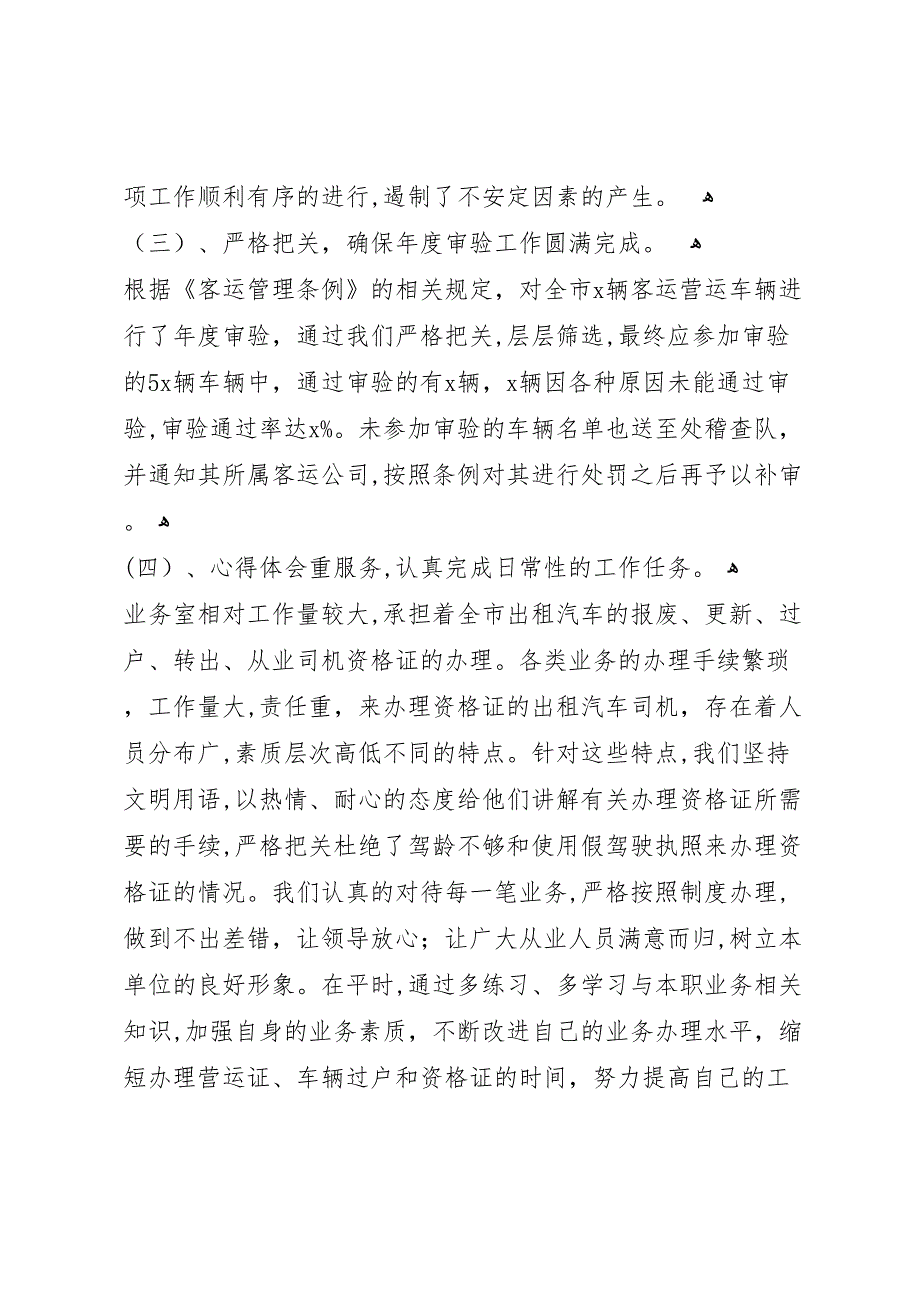 项工作顺利有序的进行,遏制了不安定因素的产生。 ﻫ
（三）、严格把关，确保年度审验工作圆满完成。 ﻫ
根据《客运管理条例》的相关规定，对全市x辆客运营运车辆进
行了年度审验，通过我们严格把关,层层筛选,最终应参加审验
的5x辆车辆中，通过审验的有x辆，x辆因各种原因未能通过审
验,审验通过率达x%。未参加审验的车辆名单也送至处稽查队，
并通知其所属客运公司,按照条例对其进行处罚之后再予以补审
。 ﻫ
(四）、心得体会重服务,认真完成日常性的工作任务。 ﻫ
业务室相对工作量较大,承担着全市出租汽车的报废、更新、过
户、转出、从业司机资格证的办理。各类业务的办理手续繁琐
，工作量大,责任重，来办理资格证的出租汽车司机，存在着人
员分布广,素质层次高低不同的特点。针对这些特点,我们坚持
文明用语,以热情、耐心的态度给他们讲解有关办理资格证所需
要的手续,严格把关杜绝了驾龄不够和使用假驾驶执照来办理资
格证的情况。我们认真的对待每一笔业务,严格按照制度办理,
做到不出差错，让领导放心；让广大从业人员满意而归,树立本
单位的良好形象。在平时,通过多练习、多学习与本职业务相关
知识,加强自身的业务素质，不断改进自己的业务办理水平，缩
短办理营运证、车辆过户和资格证的时间，努力提高自己的工